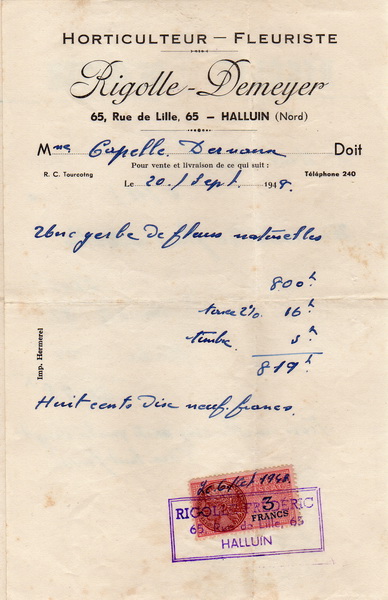 HORTICULTEUR — FLEURISTE
Rigolle-Demeyer
65, Rue de Lille, 65 — HALLUIN (Nord)
Mme Capelle Doit
Pour vente et livraison de ce qui suit :
R. C. Tourcoing Le 20 Sept. 1948. Téléphone 240
Une gerbe de fleurs naturelles
800 f
taxe 2% 16 f
timbre 3 f
819 f
Huit cents dix neuf francs.
Imp. Hermerel
1948
3
FRANCS
RIGOLLE FREDERIC
65, Rue de Lille, 65
HALLUIN